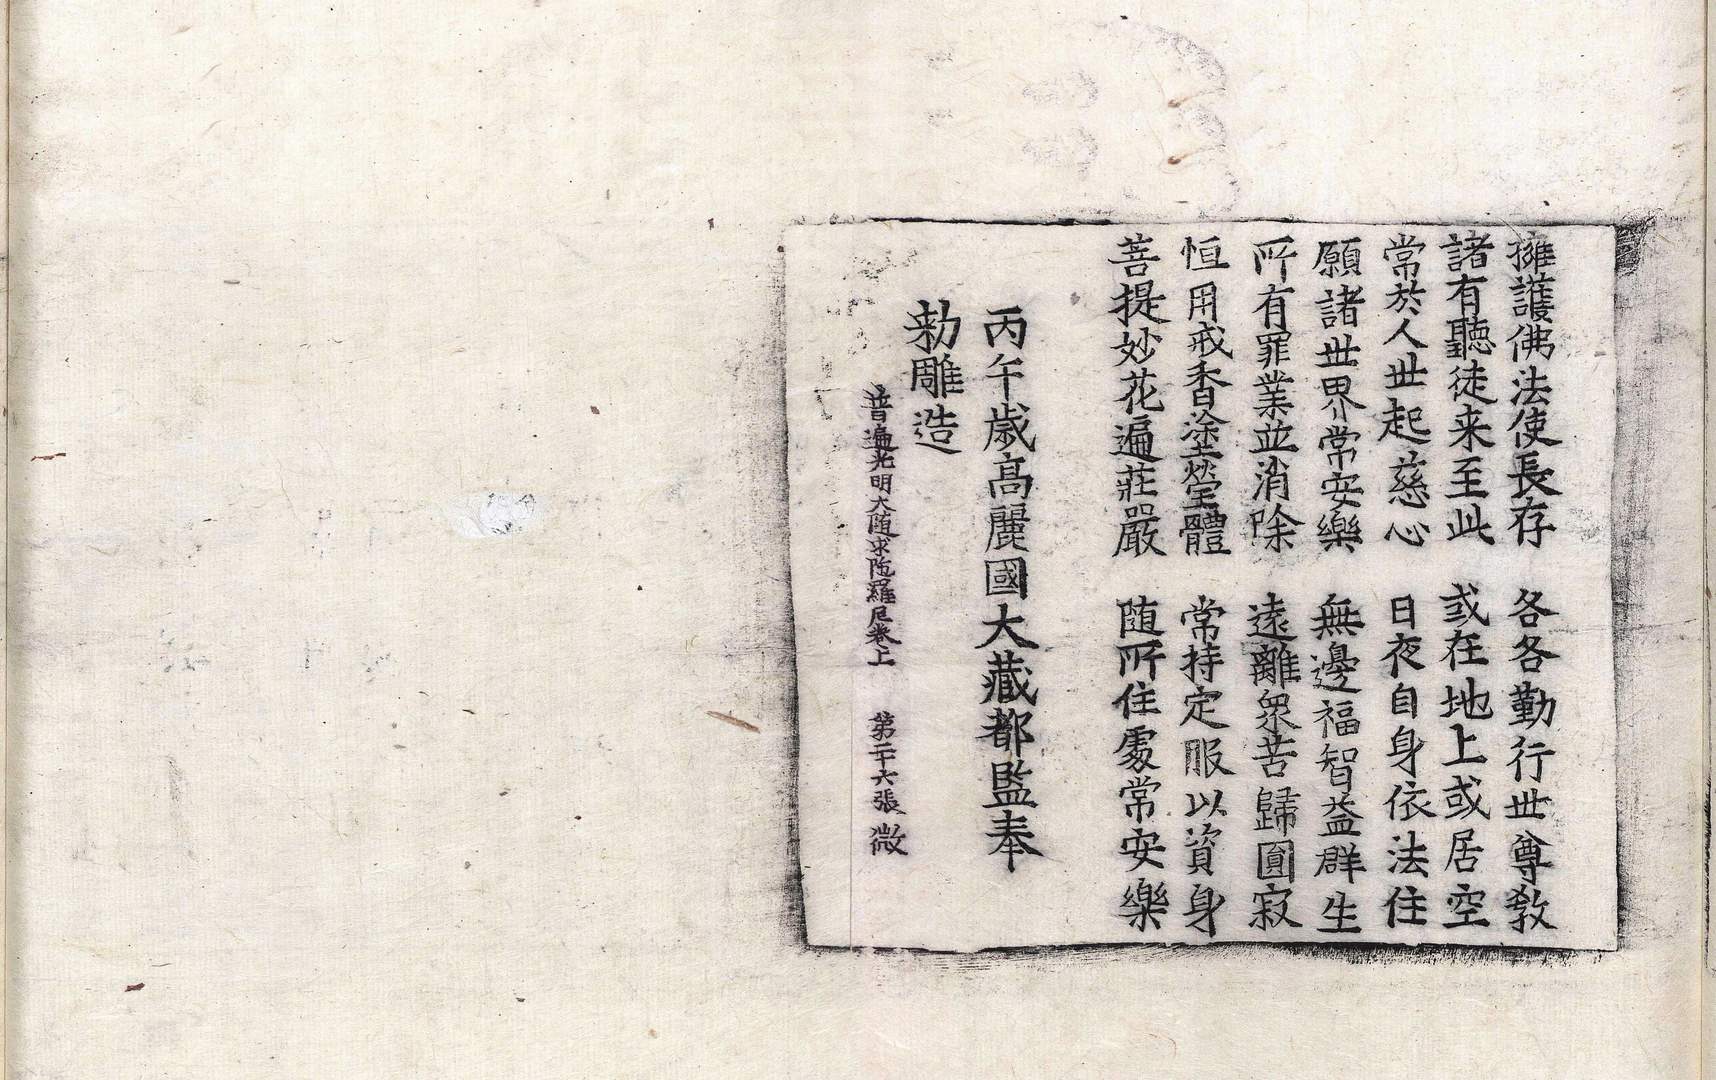 擁護佛法使長存　各各勤行世尊教
諸有聽徒来至此　或在地上或居空
常於人世起慈心　日夜自身依法住
願諸世界常安樂　無邊福智益群生
所有罪業並消除　遠離衆苦歸圓寂
恒用戒香塗瑩體　常持定服以資身
菩提妙花遍莊嚴　随所住處常安樂
丙午歳高麗國大藏都監奉
勑雕造
普遍光明大随求陁羅尼卷上　第二十六張　微